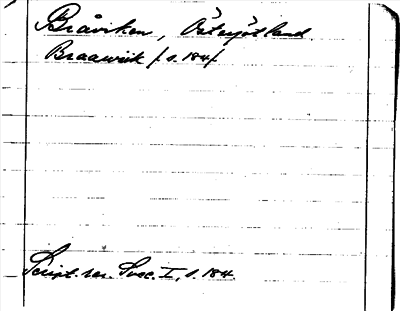 Bråviken, Östergötland.
Braawiik /s. 184/.
Script. rer. Svec. I, s. 184.